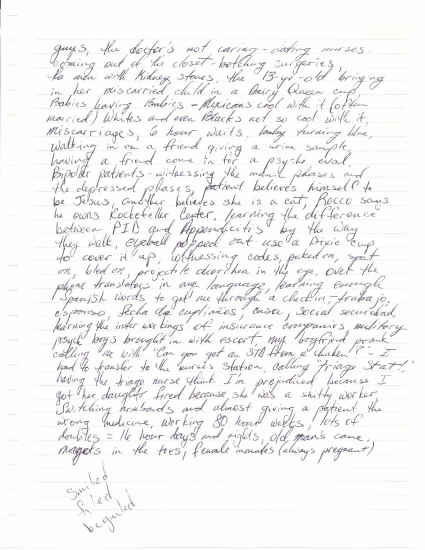 guys, the doctor's not caring - dating nurses
coming out of the closet - botching surgeries,
to men with kidney stones, the 13-yr-old bringing
in her miscarried child in a Dairy Queen cup,
Babies having Babies - Mexicans cool with it (often
married) Whites and even Blacks not so cool with it,
Miscarriages, 6 hour waits, baby turning blue,
walking in on a friend giving a urine sample,
having a friend come in for a psych eval,
Bipolar patients - witnessing the manic phases and
the depressed phases, patient believes himself to
be Jesus, another believes she is a cat, Rocco says
he owns Rockefeller Center, learning the difference
between PID and Appendicitis by the way
they walk, eyeball popped out use a Dixie cup
to cover it up, witnessing codes, puked on, spat
on, bled on, projectile diarrhea in the eye, over the
phone translators in any language, learning enough
Spanish words to get me through a check-in - trabajo,
esposo, fecha de cumpliaños, casa, social security,
learning the inner workings of insurance companies, military
psych boys brought in with escort, my boyfriend prank
calling me with "Can you get an STD from a chicken?" - I
had to transfer to the nurse's station, calling "triage Stat!,"
having the triage nurse think I'm prejudiced because I
got her daughter fired because she was a shitty worker,
Switching armbands and almost giving a patient the
wrong medicine, working 80 hour weeks, lots of
doubles = 16 hour days and nights, old man's cane,
maggots in the toes, female inmates (always pregnant)
Smiled